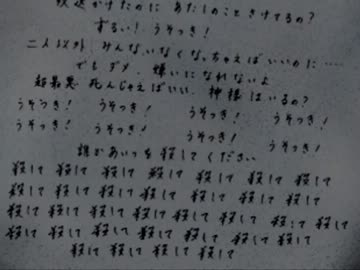 放送かけたのに あたしのことさけてるの?
ずるい! うそつき!
二人以外 みんないなくなっちゃえばいいのに……
でもダメ、嫌いになれないよ
超最悪 死んじゃえばいい 神様はいるの?
うそつき! うそつき! うそつき! うそつき!
うそつき! うそつき! うそつき! うそつき!
誰かあいつを殺してください
殺して 殺して 殺して 殺して 殺して 殺して 殺して
殺して 殺して 殺して 殺して 殺して 殺して 殺して
殺して 殺して 殺して 殺して 殺して 殺して 殺して 殺して
殺して 殺して 殺して 殺して 殺して 殺して 殺して 殺して
殺して 殺して 殺して 殺して